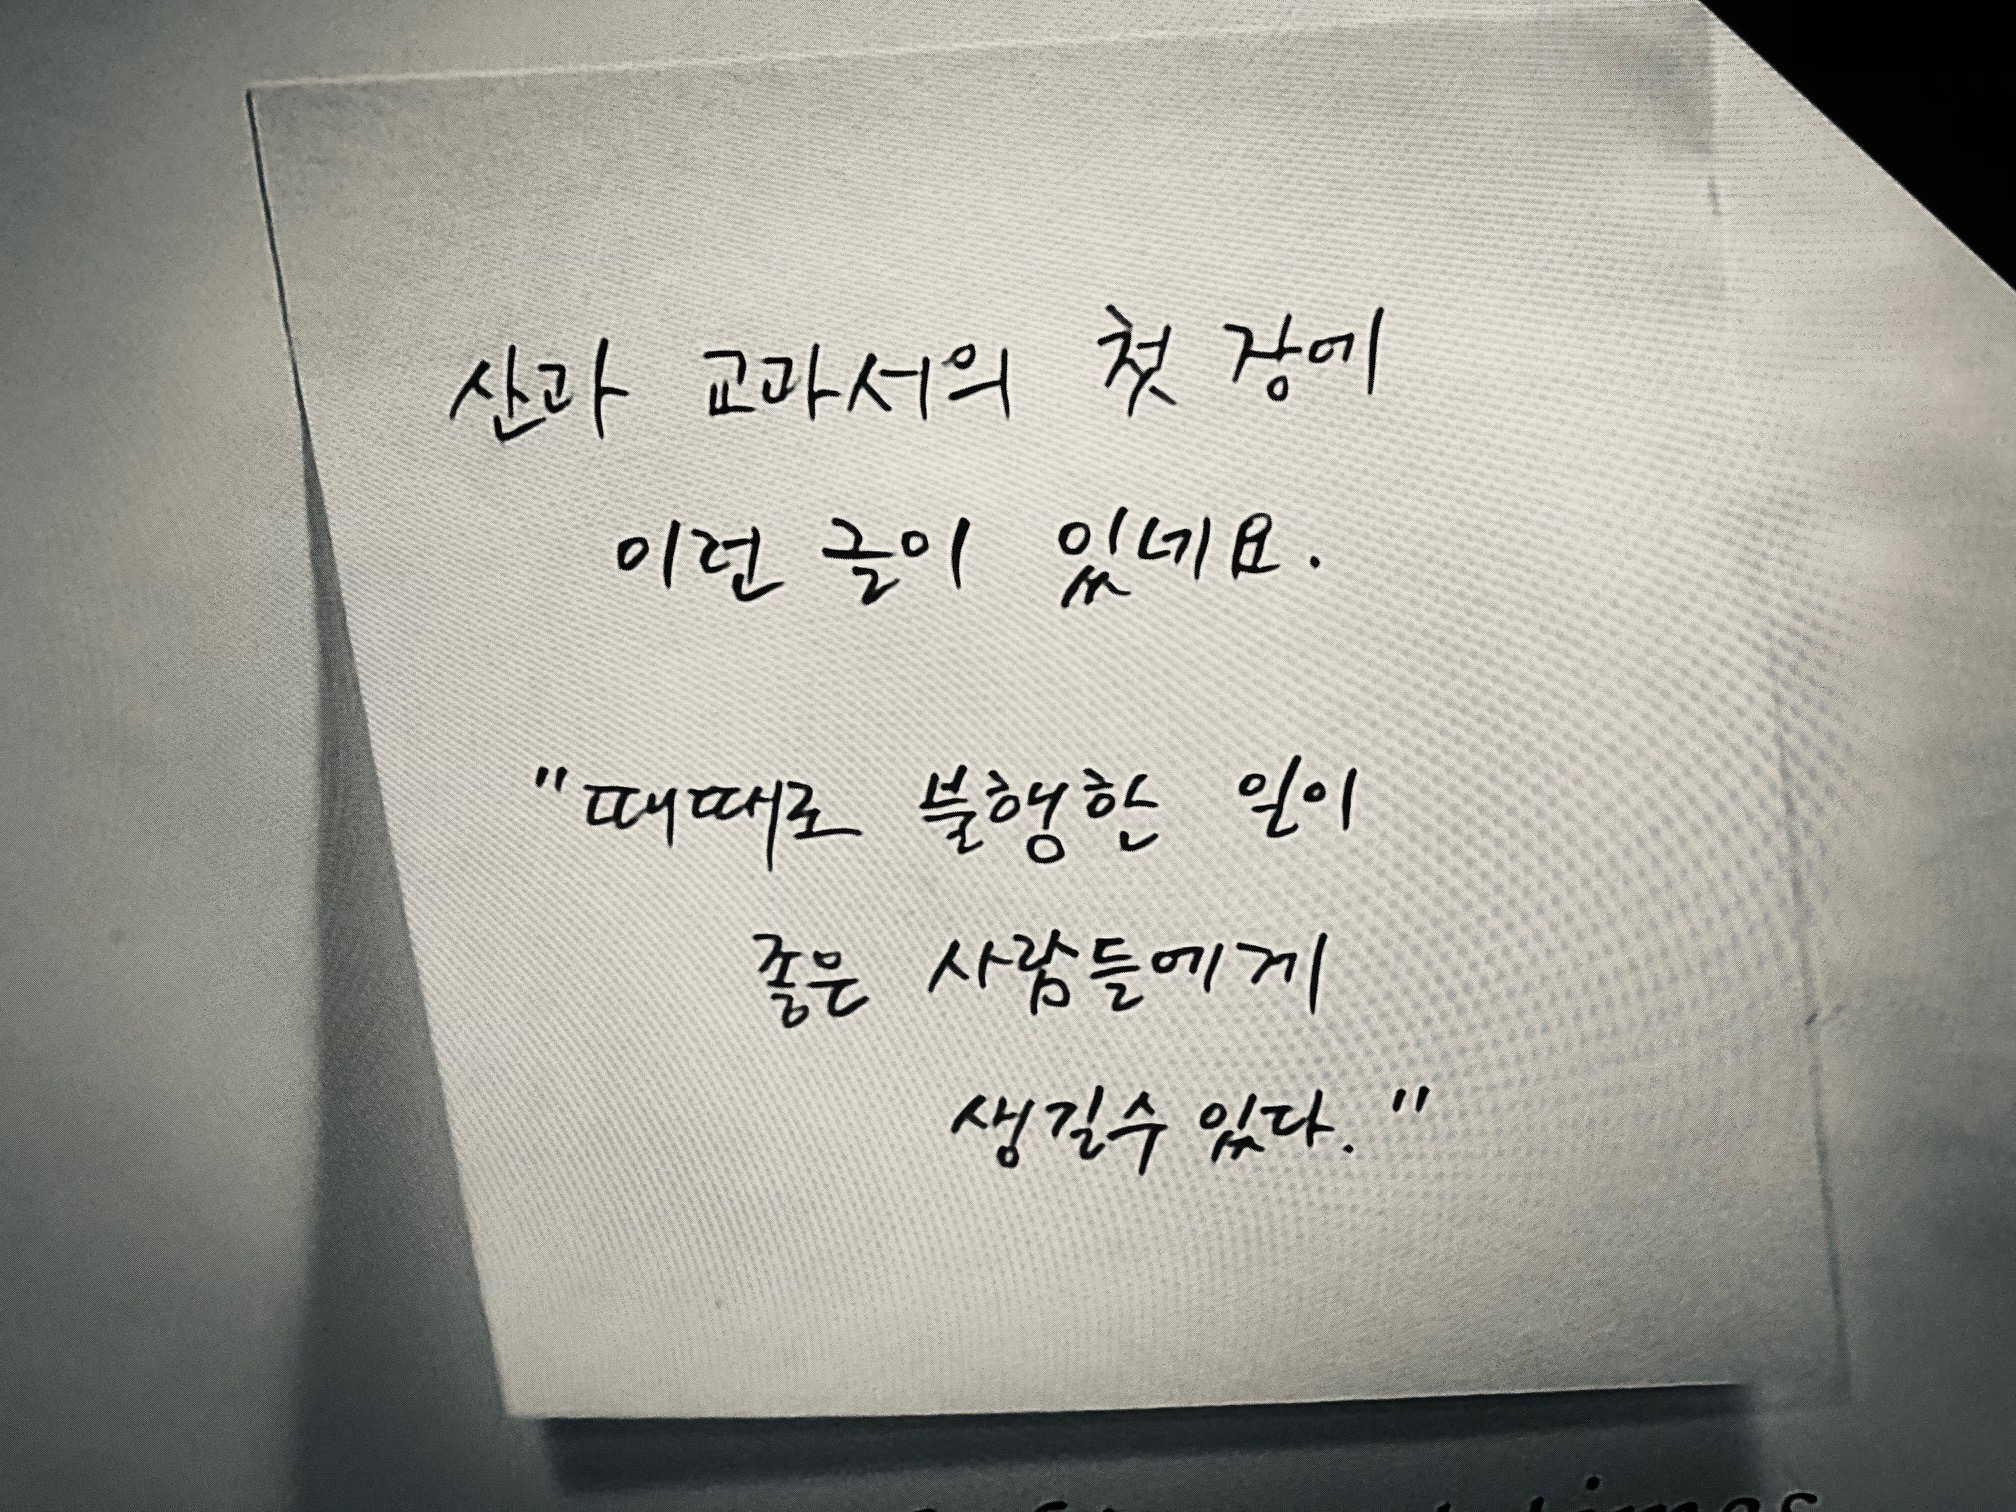 산과 교과서의 첫 장에
이런 글이 있네요.
"때때로 불행한 일이
좋은 사람들에게
생길수 있다."